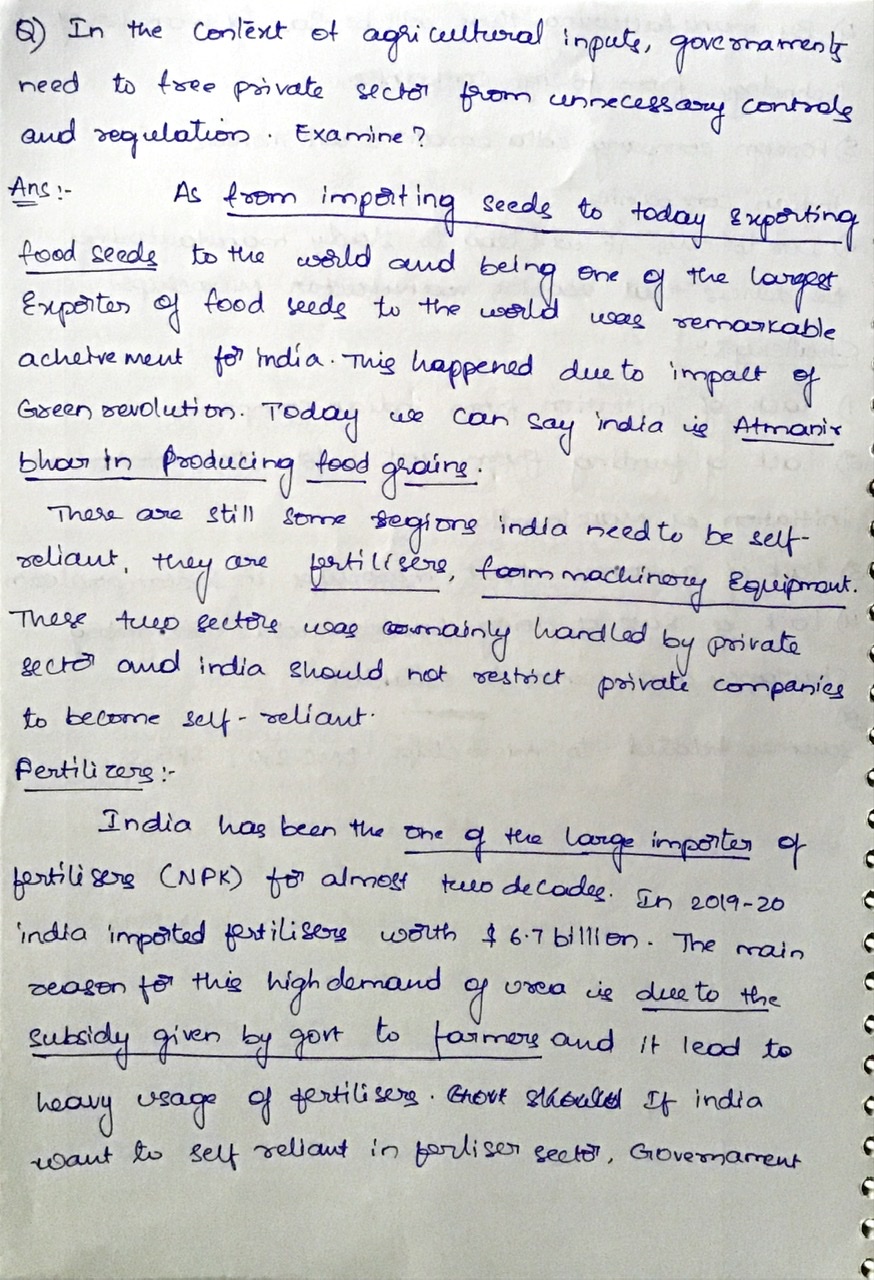 Q) In the context of agricultural inputs, governaments
need to free private sector from unnecessary controls
and regulation. Examine?
Ans:- As from importing seeds to today Exporting
food seeds to the world and being one of the largest
Exporter of food seeds to the world was remarkable
acheivement for india. This happened due to impact of
Green revolution. Today we can say india is Atmanir
bhar in Producing food grains.
There are still some regions india need to be self-
reliant, they are fertilisers, farm machinery Equipment.
These two sectors was mainly handled by private
sector and india should not restrict private companies
to become self-reliant.
Fertilizers:-
India has been the one of the large importer of
fertilisers (NPK) for almost two decades. In 2019-20
india imported fertilisers worth $ 6.7 billion. The main
reason for this high demand of urea is due to the
subsidy given by govt to farmers and it lead to
heavy usage of fertilisers. Govt should If india
want to self reliant in ferliser sector, Governament